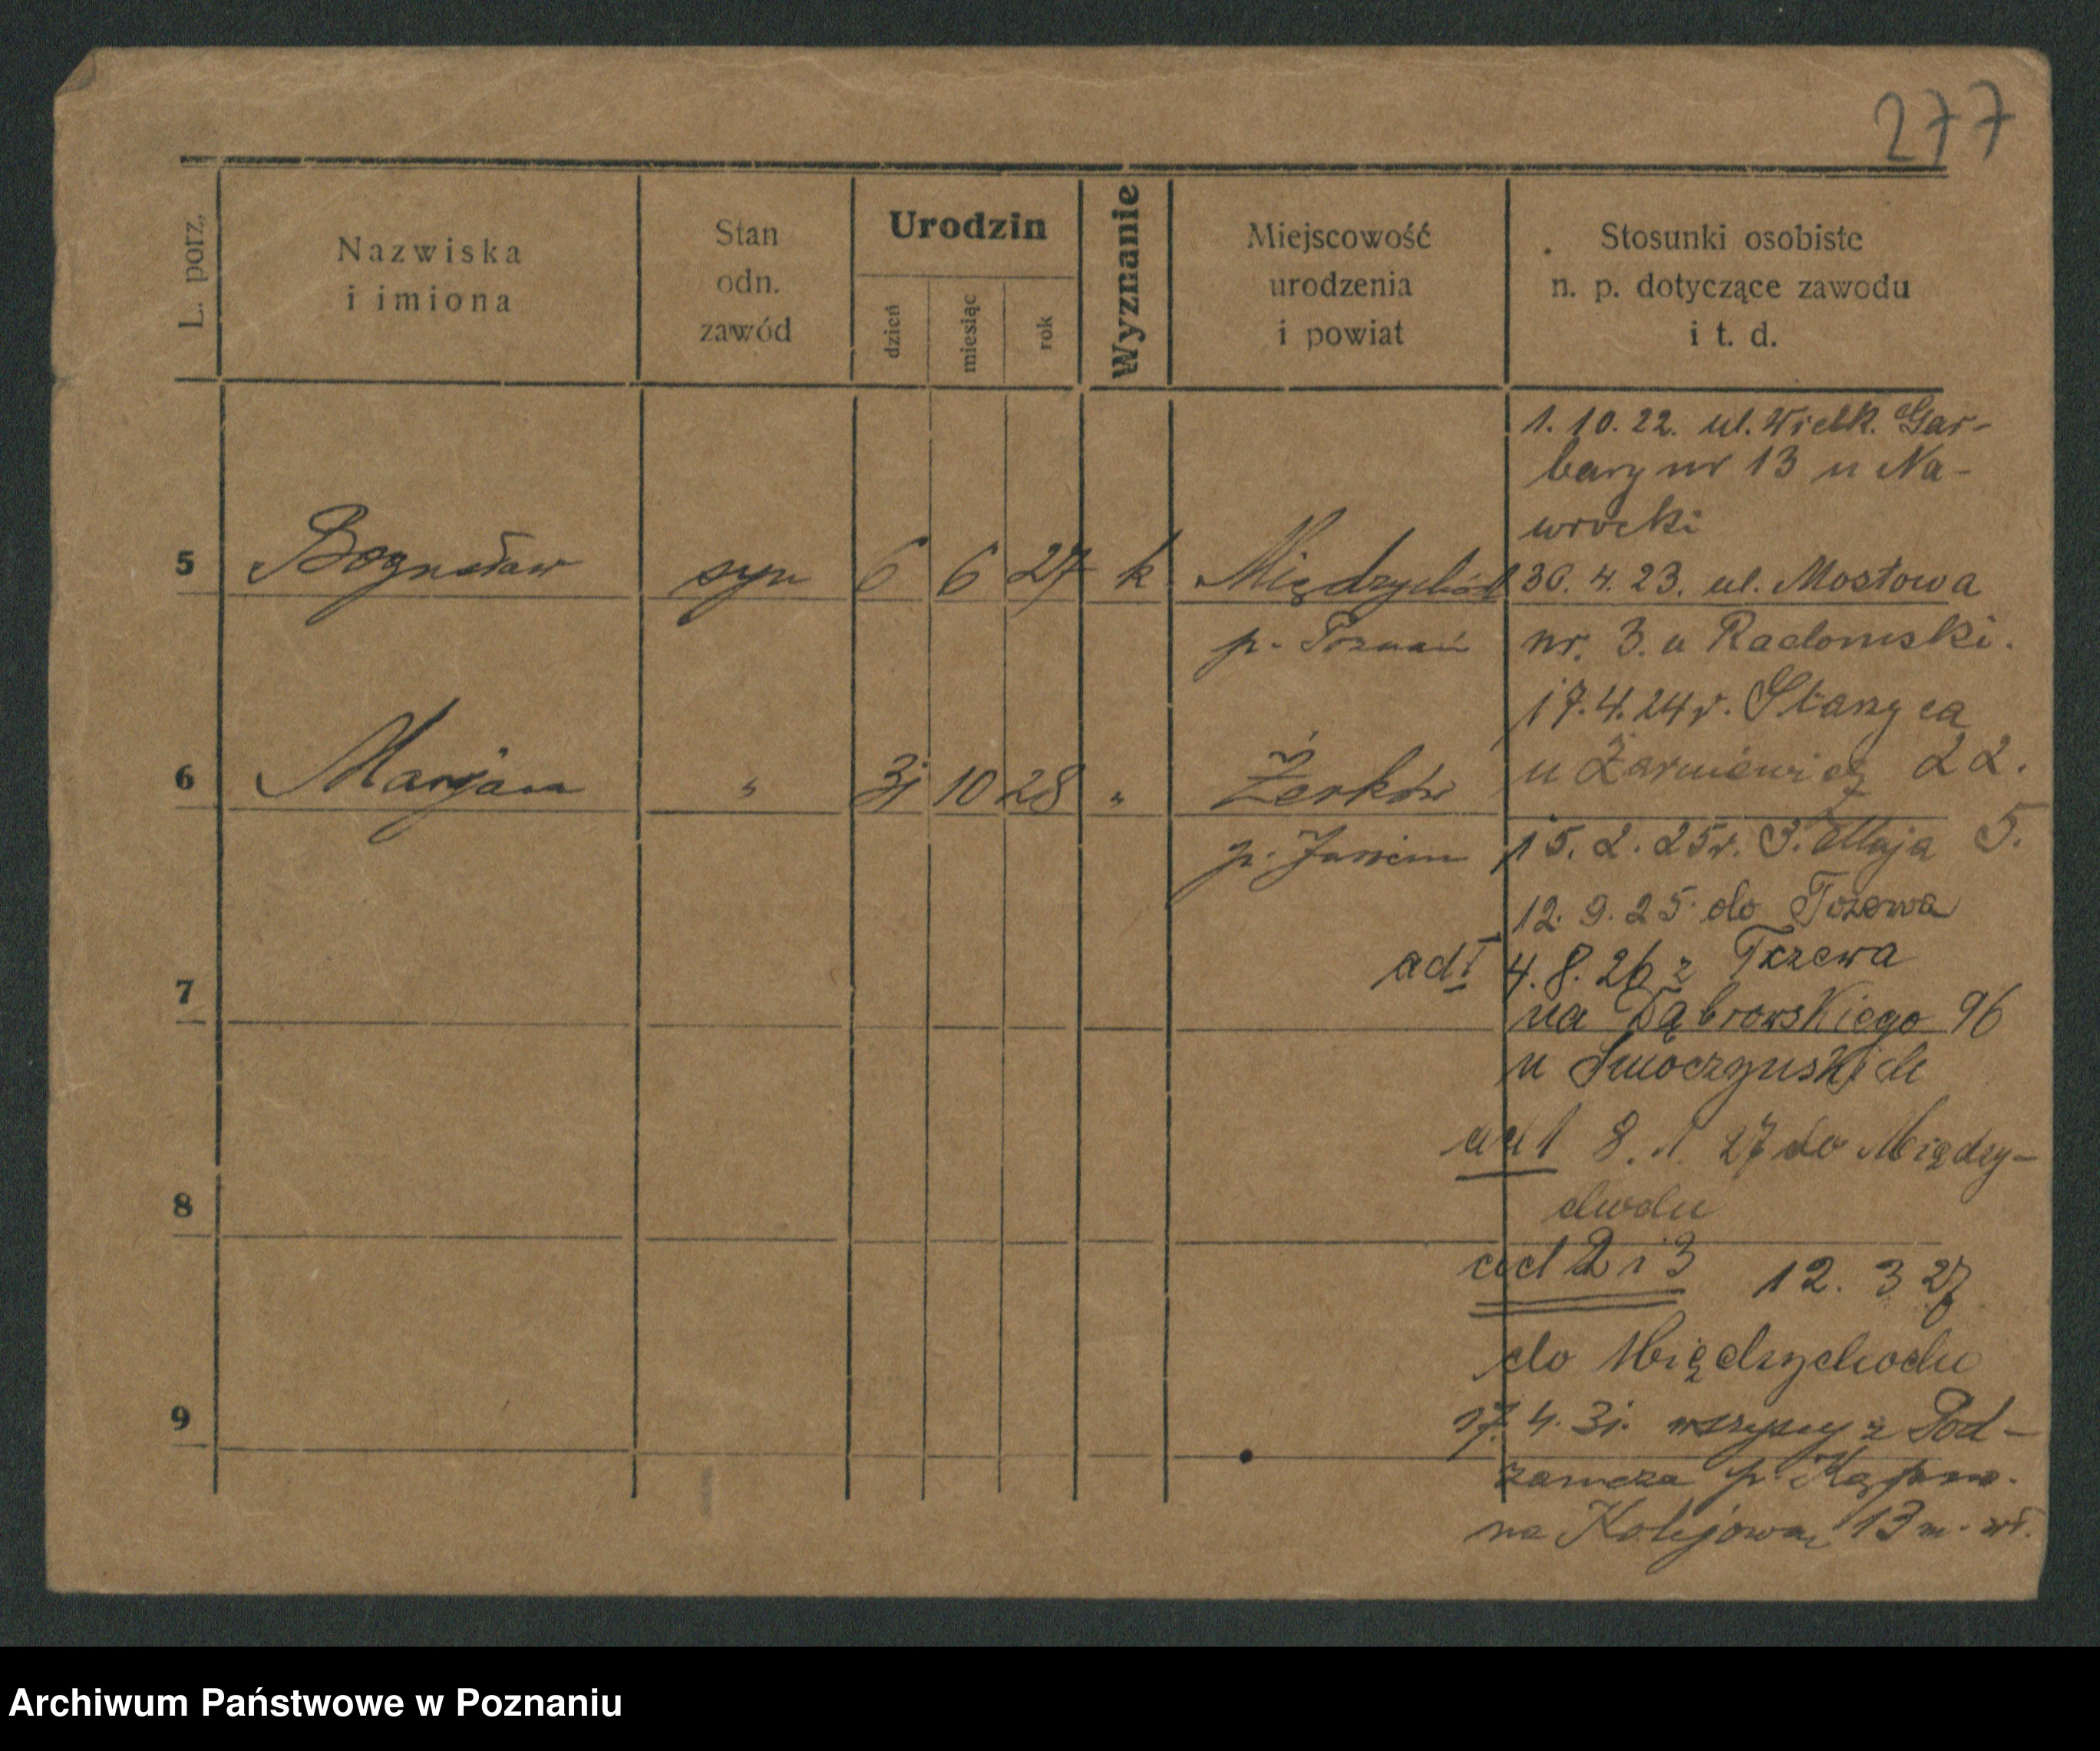 277
L. porz.
Nazwiska
i imiona
Stan
odn.
zawód
Urodzin
dzień
miesiąc
rok
Wyznanie
Miejscowość
urodzenia
i powiat
Stosunki osobiste
n. p. dotyczące zawodu
i t. d.
5 Bogusław syn 6 6 27 k Międzychód
p. Poznań
6 Marjan " 31 10 28 " Żerków
p. Jarocin
7
8
9
1. 10. 22. ul. Wielk. Gar-
bary nr 13 u Na-
wrocki
30. 4. 23. ul. Mostowa
nr. 3. u Radomski.
17. 4. 24 r. Staszyca
u 22.
15. 2. 25 r. 3. Maja 5.
12. 9. 25 do Tczewa
ad 1 4. 8. 26 z Tczewa
na Dąbrowskiego 96
u Smoczyńskich
ad 1 8. 1. 27 do Między-
chodu
ad 2 i 3 12. 3 27
do Międzychodu
17. 4. 31. wszyscy z Pod-
zamcza p.
na Kolejową 13 m.
Archiwum Państwowe w Poznaniu